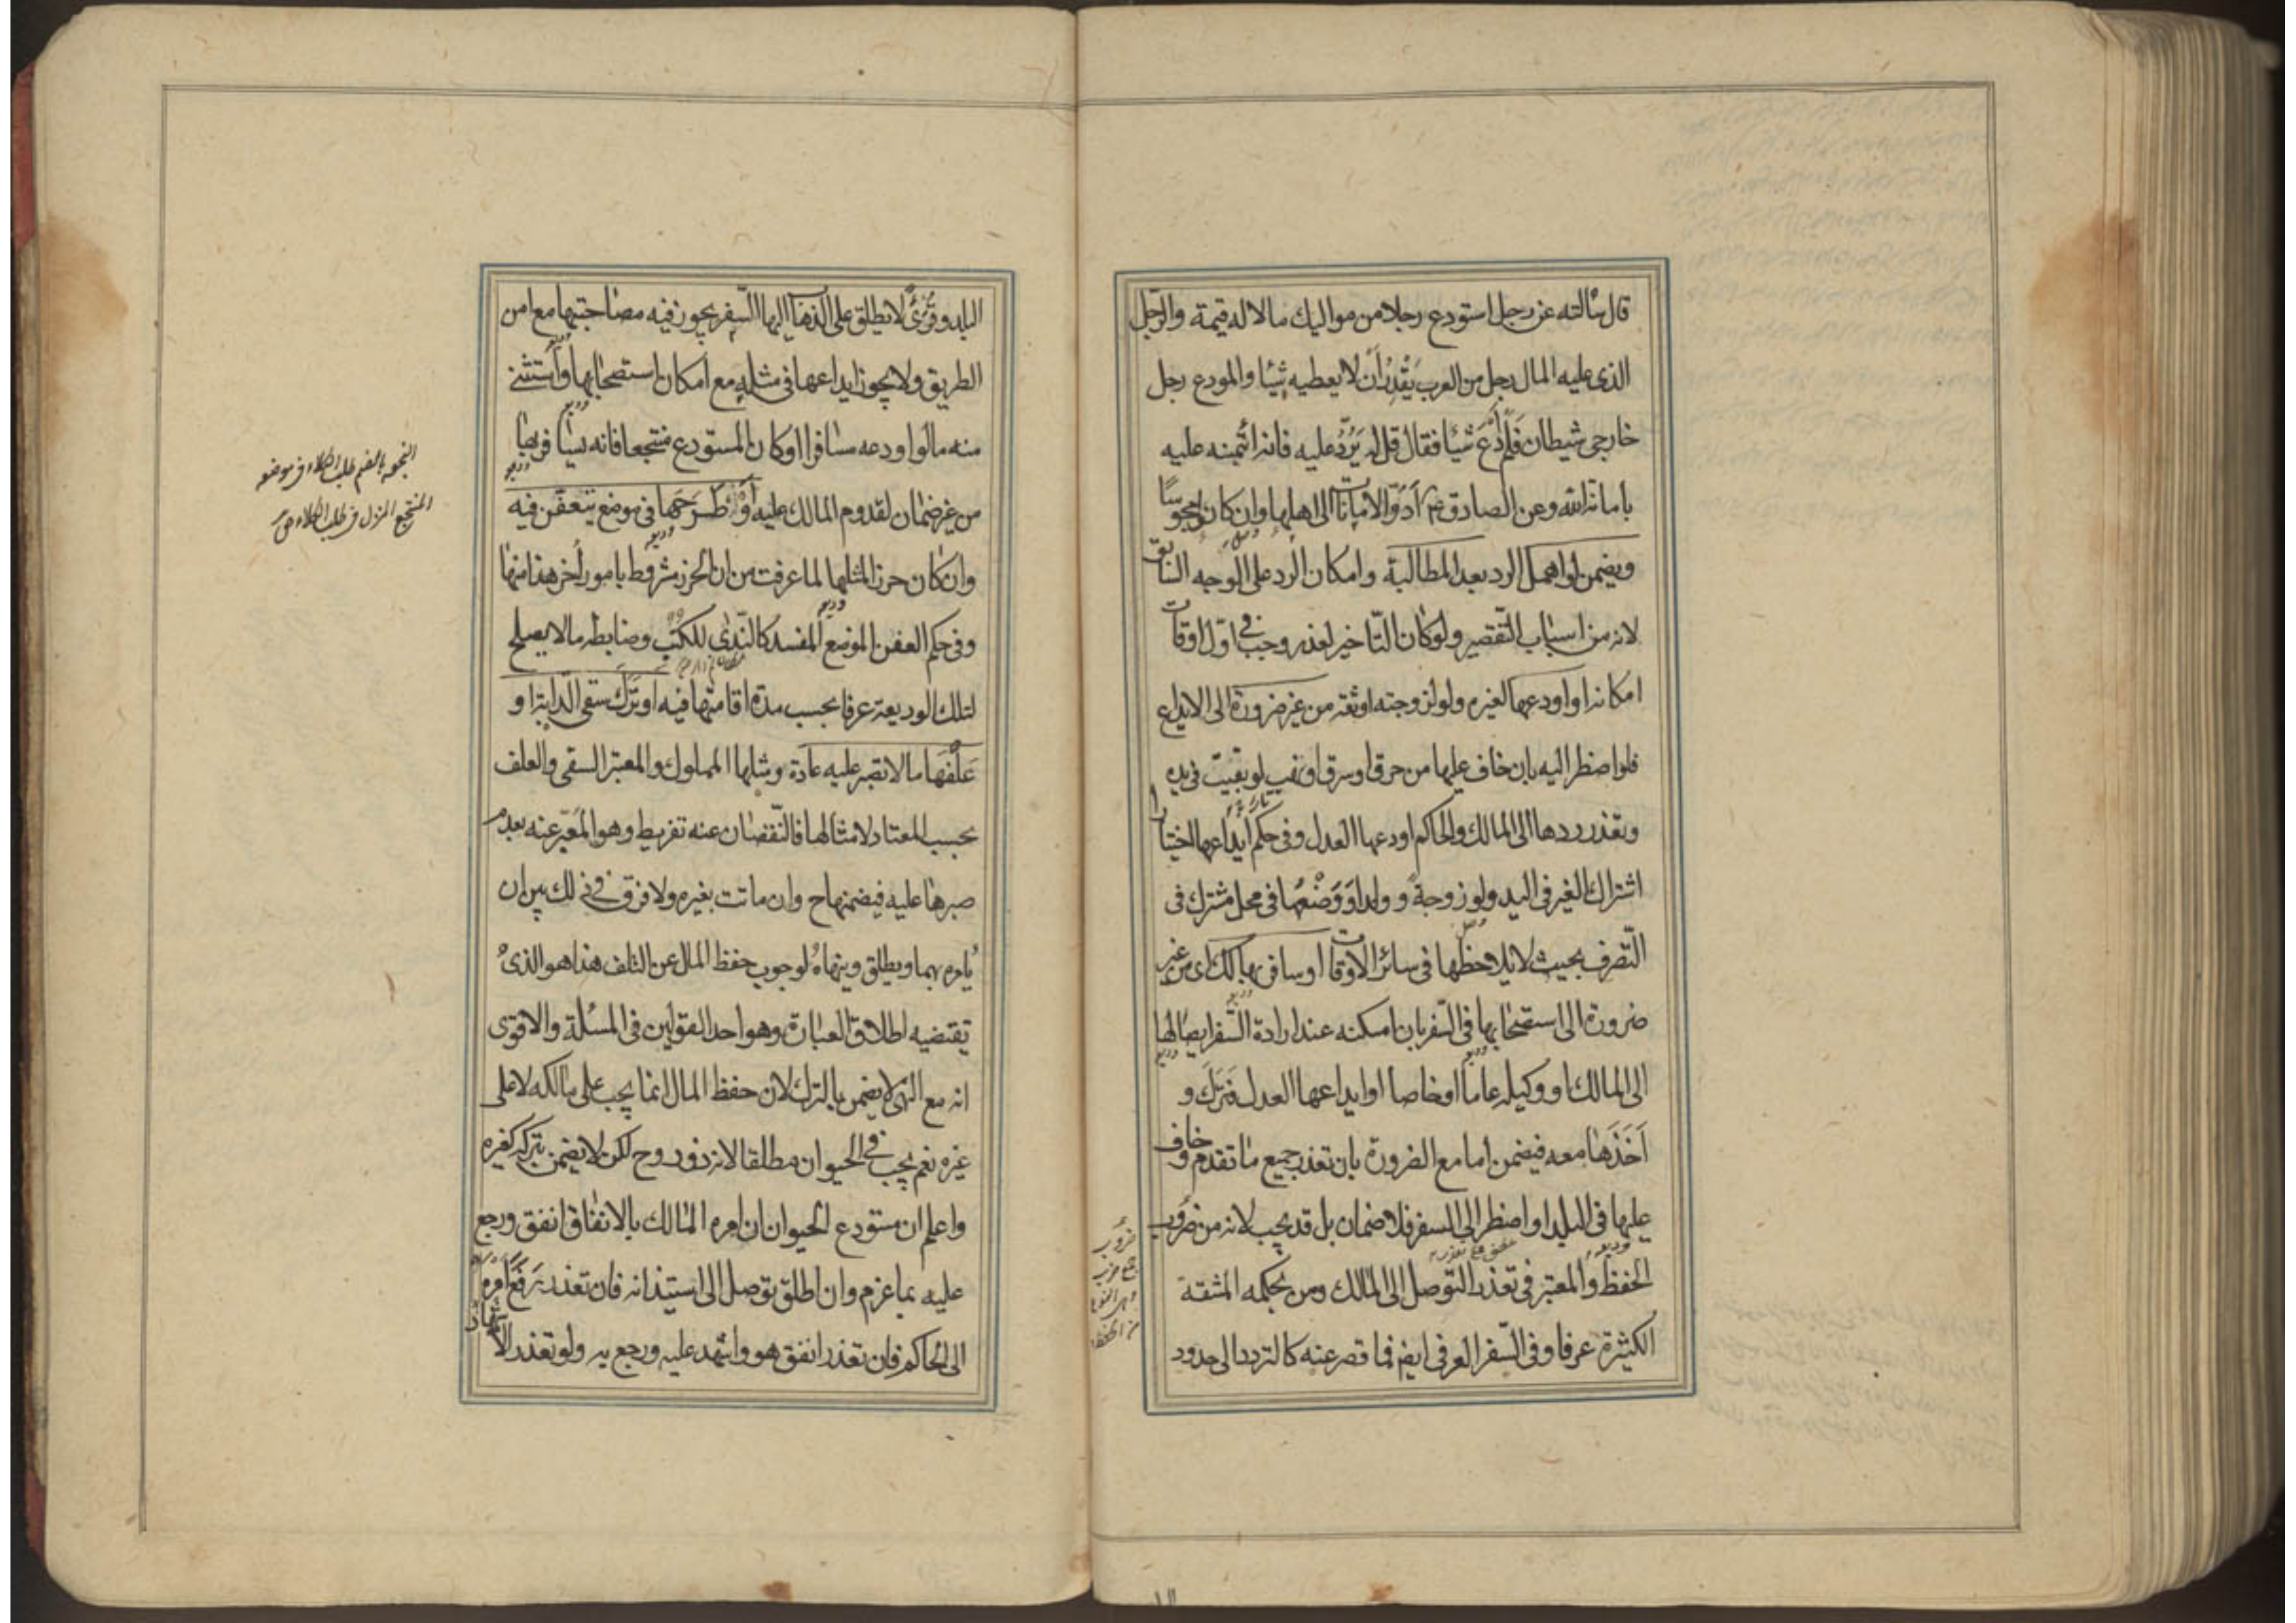 قال سألته عن رجل استودع رجلا من مواليك مالا له قيمة والرجل
الذى عليه المال رجل من العرب يَقْدِرُ اَنْ لا يعطيه شيئا والمودع رجل
خارجى شيطان فَلَمْ اَدَعْ شيئا فقال قل له يَرُدُّ عليه فانه ائتمنه عليه
بامانة الله وعن الصادق ع اَدُّوا الامانات الى اهلها وان كان مجوسيًا
ويضمن لو اهمل الرد بعد المطالبة وامكان الرد على الوجه السابق
لانه من اسباب التّقصير ولو كان التّاخير لعذر وجب فى اوّل اوقات
امكانه او اودعها لغيره ولو لزوجته او ثقة من غير ضرورة الى الايداع
فلو اضطر اليه بان خاف عليها من حرق او سرق او نهب لو بقيت فى يده
وتعذر ردها الى المالك والحاكم اودعها العدل وفى حكم ايداعها اختيارا
اشتراك الغير فى اليد ولو زوجة و ولدا اَوْ وَضْعُها فى محل مشترك فى
التّصرف بحيث لا يلاحظها فى سائر الاوقات او سافر بها كك اى من غير
ضرورة الى استصحابها فى السّفر بان امكنه عند ارادة السّفر ايصالها
الى المالك او وكيله عاما او خاصا او ايداعها العدل فَتَرَكَ و
اَخَذَها معه فيضمن اما مع الضرورة بان تعذر جميع ما تقدم وخاف
عليها فى البلد او اضطر الى السفر فلا ضمان بل قد يجب لانه من ضروب
الحفظ والمعتبر فى تعذر التّوصل الى المالك ومن بحكمه المشقة
الكثيرة عرفا وفى السّفر العرفى ايض فما قصر عنه كالتردد الى حدود
ضروب
البلد وقُرىً لا يطلق على الذهاب اليها السّفر يجوز فيه مصاحبتها مع امن
الطريق ولا يجوز ايداعها فى مثله مع امكان استصحابها واستثنى
منه ما لو اودعه مسافرا او كان المستودع منتجعا فانه يسافر بها
من غير ضمان لقدوم المالك عليه اَوْ طَرَحَها فى موضع يتعفّن فيه
وان كان حرزا لمثلها لما عرفت من ان الحرز مشروط بامور اُخر هذا منها
وفى حكم العفن الموضع المفسد كالنّدى للكتب وضابطه ما لا يصلح
لتلك الوديعة عرفا بحسب مدة اقامتها فيه او تَرَكَ سقى الدّابة او
عَلْفَها ما لا تصبر عليه عادة ومثلها المملوك والمعتبر السقى والعلف
بحسب المعتاد لامثالها فالنّقصان عنه تفريط وهو المُعَبّر عنه بعدم
صبرها عليه فيضمنها ح وان ماتت بغيره ولا فرق فى ذلك بين ان
يامره بهما ويطلق وينهاه لوجوب حفظ المال عن التلف هذا هو الذى
تقتضيه اطلاق العبارة وهو احد القولين فى المسئلة والاقوى
انه مع النهى لا يضمن بالترك لان حفظ المال انما يجب على مالكه لا على
غيره نعم يجب فى الحيوان مطلقا لانه ذو روح لكن لا يضمن بتركه كغيره
واعلم ان مستودع الحيوان ان امره المالك بالانفاق انفق ورجع
عليه بما غرم وان اطلق توصل الى استيذانه فان تعذر رَفَعَ امره
الى الحاكم فان تعذر انفق هو واشهد عليه ورجع به ولو تعذر الاشهاد
النجعه بالضم طلب الكلاء فى موضعه
المنتجع المنزل فى طلب الكلاء